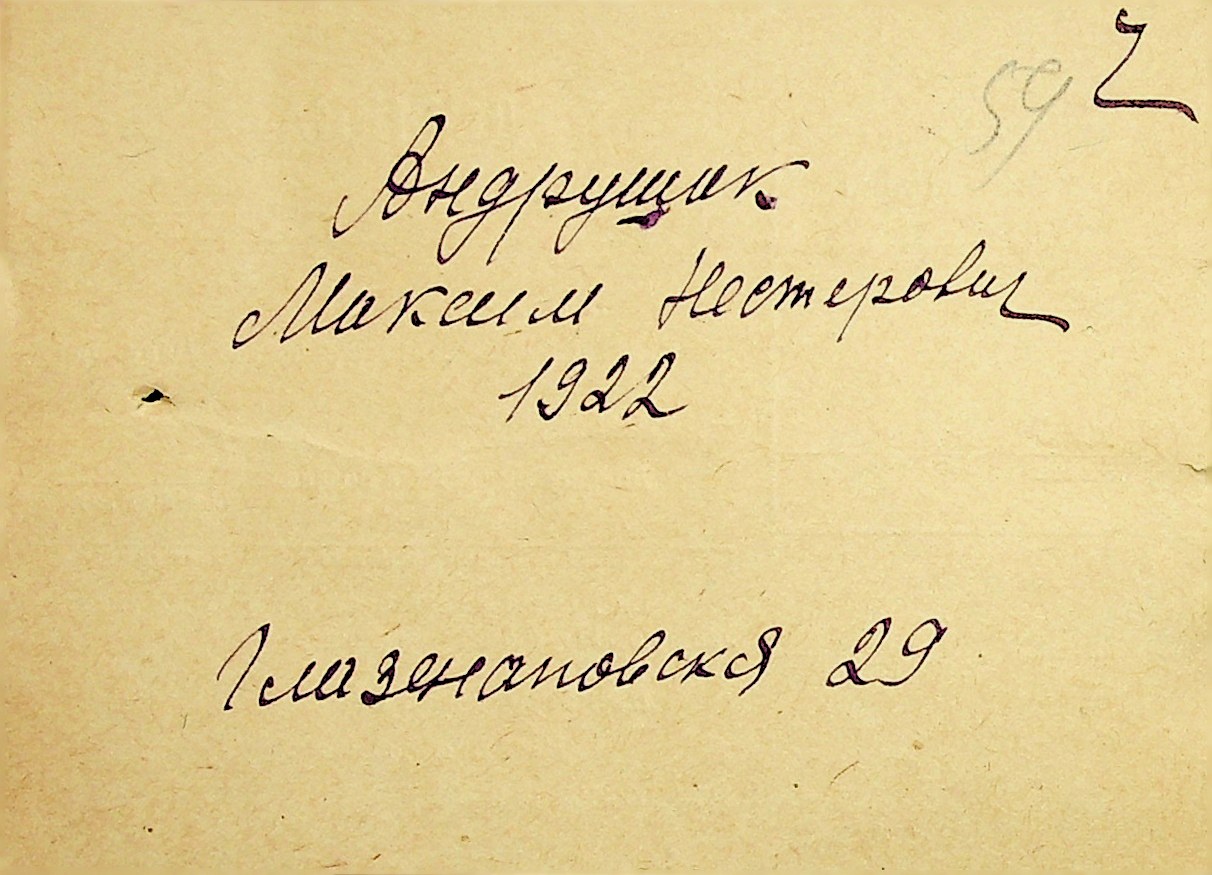 59 ч
Андрушак
Максим Нестерович
1922
Глазенаповскя 29